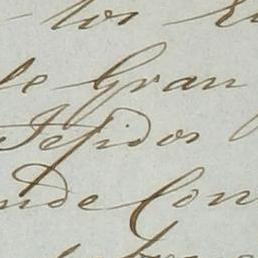 los
de Gran
Tejidos
nde Con